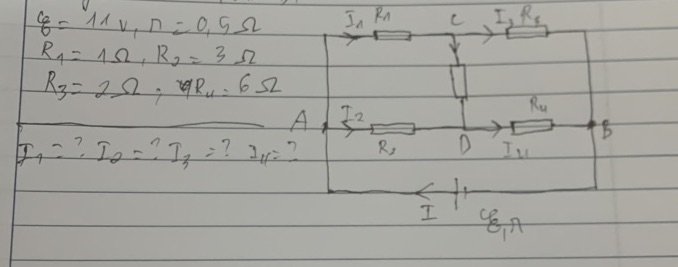 ℰ = 11 v, r = 0,5 Ω
R1 = 1 Ω, R2 = 3 Ω
R3 = 2 Ω; R4 = 6 Ω
I1 = ? I2 = ? I3 = ? I4 = ?
I1 R1 C I3 R3
A I2 R2 D I4 R4 B
I ℰ, r